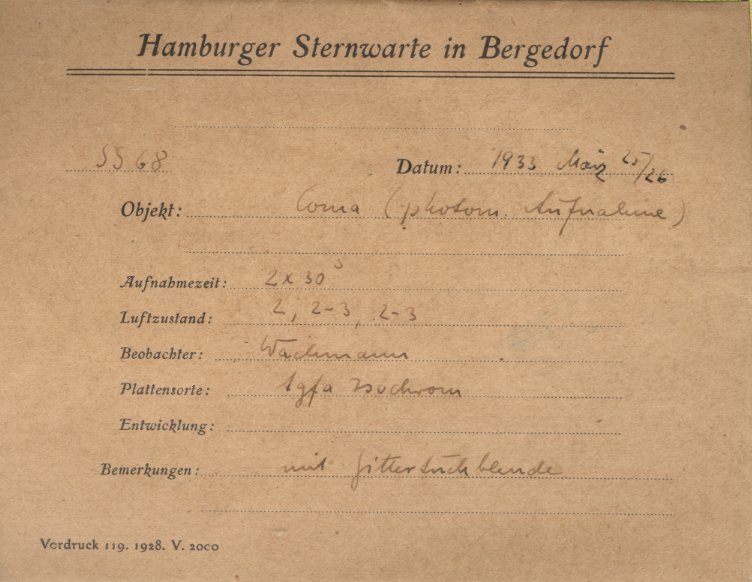 Hamburger Sternwarte in Bergedorf
SS 68 Datum: 1933 März 25/26
Objekt: Coma (photom. Aufnahme)
Aufnahmezeit: 2 x 30 s
Luftzustand: 2, 2-3, 2-3
Beobachter: Wachmann
Plattensorte: Agfa Isochrom
Entwicklung:
Bemerkungen: mit Gittertuchblende
Vordruck 119. 1928. V. 2000